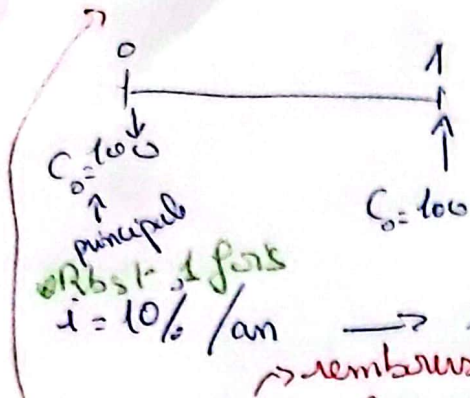 0 1
C₀=100
principale
C₀=100
Rbst 1 fois
i=10% /an →
→ rembours